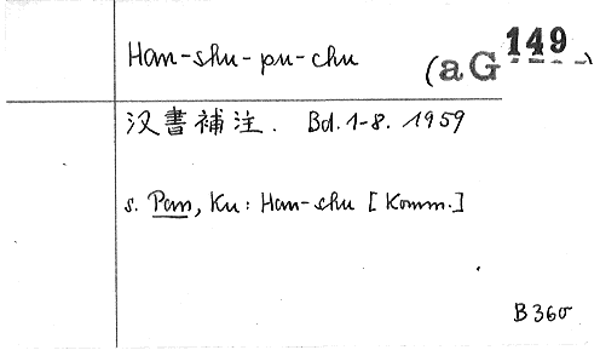 Han-shu-pu-chu (aG 149)
汉書補注. Bd. 1-8. 1959
s. Pan, Ku: Han-shu [Komm.]
B 360